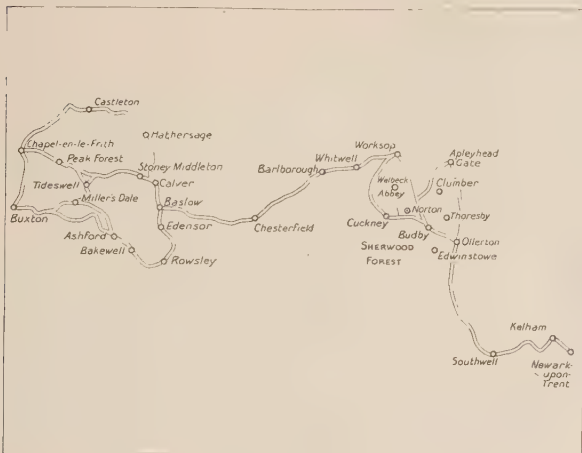 Castleton
Hathersage
Chapel-en-le-Frith
Peak Forest
Stoney Middleton
Tideswell
Calver
Miller's Dale
Baslow
Buxton
Edensor
Ashford
Bakewell
Rowsley
Chesterfield
Barlborough
Whitwell
Worksop
Apleyhead
Gate
Welbeck
Abbey
Clumber
Norton
Thoresby
Cuckney
Budby
Ollerton
SHERWOOD
FOREST
Edwinstowe
Kelham
Southwell
Newark-
upon-
Trent